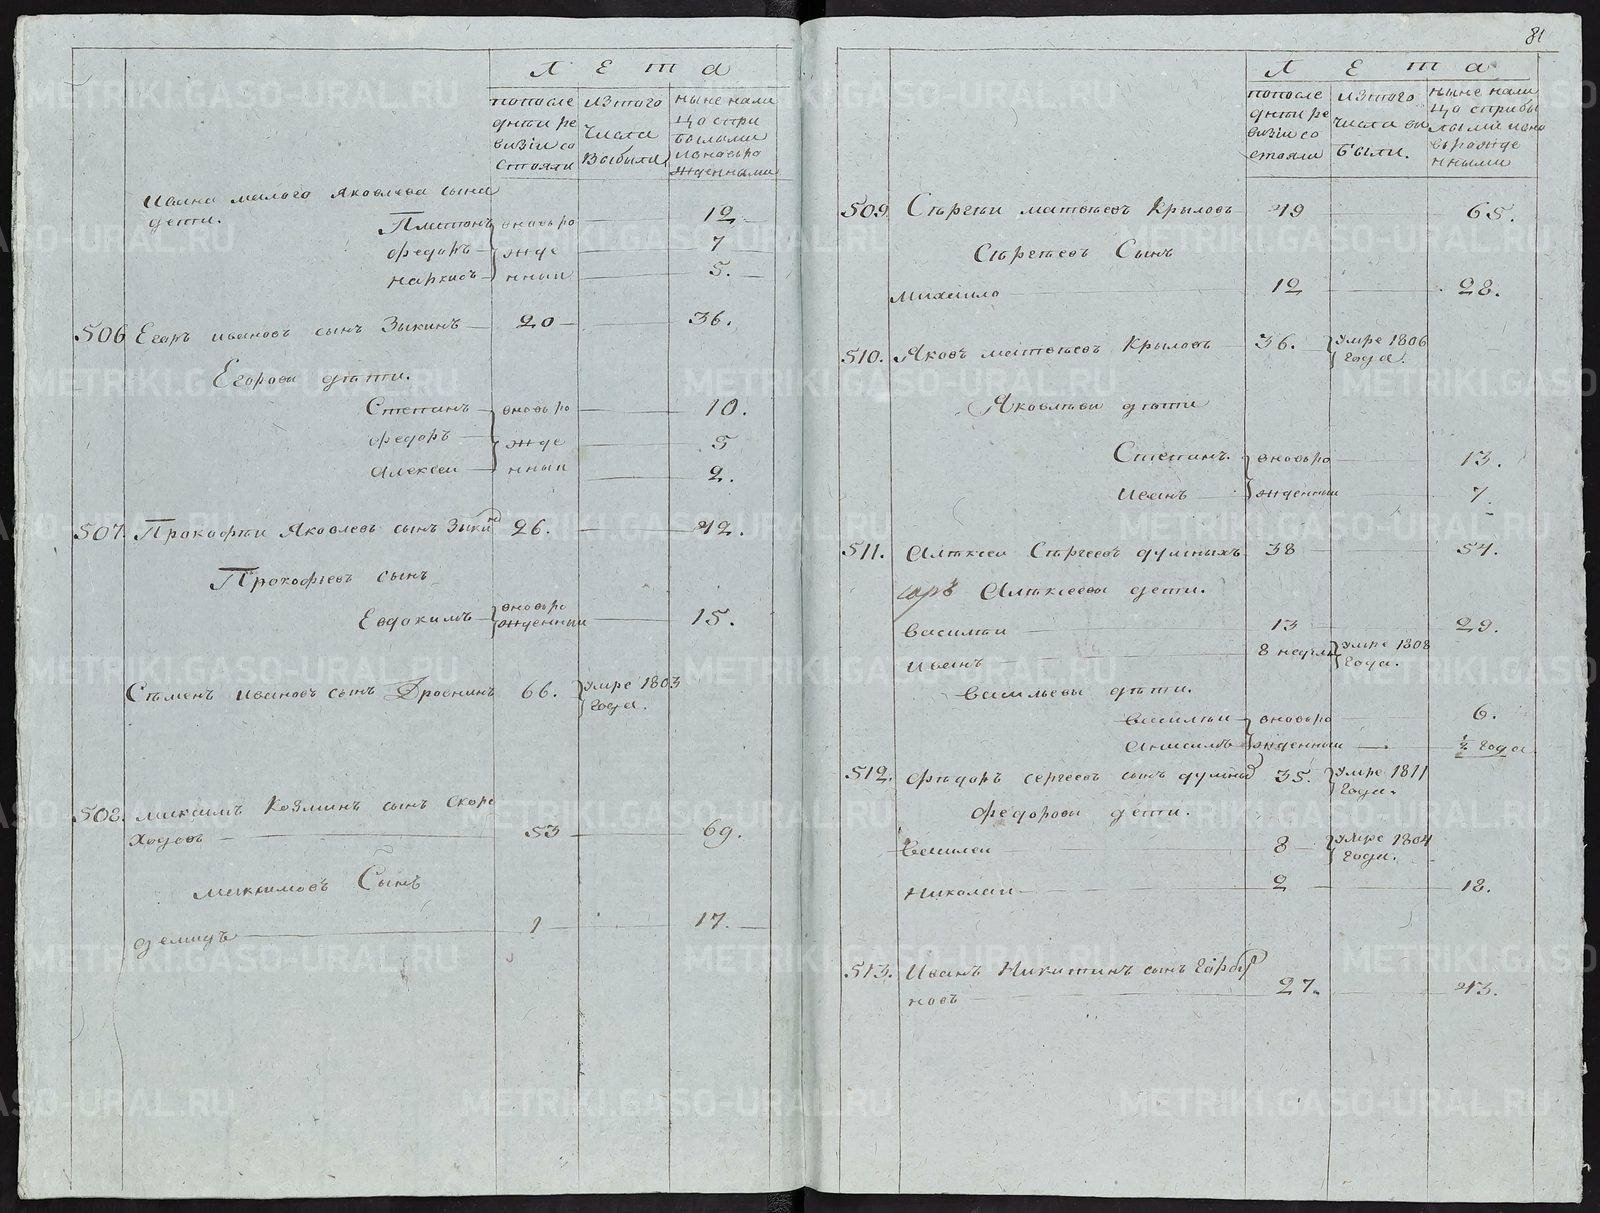 Лета
по после
днти ре
визiи со
стояли
изтого
числа
выбыли
ныне нали
цо спри
былыми
и вновь ро
жденными
Ивана малого Яковлева сына
дети.
Платонъ вновь ро 12
Федоръ жде 7
Наркисъ нныи 5.
506 Егоръ ивановъ сынъ Зыкинъ 20 36.
Егоровы дѣти.
Степанъ вновь ро 10.
Федоръ жде 5
Алексеи нныи 2.
507. Прокофеи Яковлевъ сынъ Зыкинъ 26. 42.
Прокофьевъ сынъ
Евдокимъ вновь ро
жденныи 15.
Сѣменъ ивановъ сынъ 66. умре 1803
года.
508. Максимъ Козминъ сынъ Скоро
ходовъ 53 69.
Максимовъ Сынъ
Демидъ 1 17.
81
Лета
по после
днти ре
визiи со
стояли
изтого
числа вы
были.
ныне нали
цо спри бы
лыми и вно
вь рожде
нными
509. Сѣргеи матвѣевъ Крыловъ 49 65.
Сѣргѣевъ Сынъ
Михаило 12 28.
510. Яковъ матвѣевъ Крыловъ 36. умре 1806
года.
Яковлевы дѣти
Степанъ. вновь ро 13.
Иванъ жденныи 7.
511. Алѣксеи Сѣргеевъ думныхъ 38 54.
Алѣксеевы дети.
Василеи 13 29.
Иванъ 8 недѣль умре 1808
года.
Васильевы дѣти.
Василеи вновь ро 6.
Анисимъ жденныи ½ года
512. Фѣдоръ сергеевъ сынъ думныхъ 35. умре 1811
года.
Федоровы дети.
Василеи 8 умре 1804
года.
Николаи 2 18.
513. Иванъ Никитинъ сынъ Горбу
новъ 27. 43.
METRIKI.GASO-URAL.RU